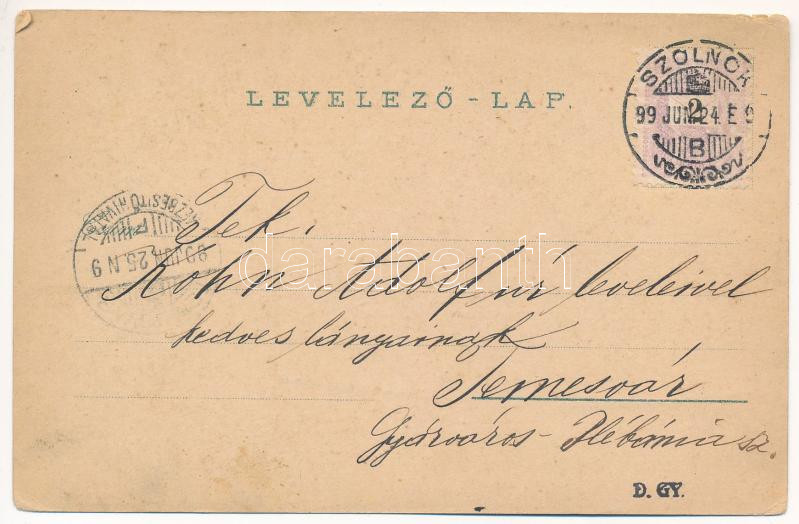 LEVELEZŐ-LAP.
SZOLNOK
2
99 JUN. 24. E 9
B
KÉZBESÍTŐ HIVATAL
99 JUN 25 N 9
Tek.
Kohn Adolf úr leveleivel
kedves lányainak
Temesvár
Gyárváros - Plébánia sz.
D. GY.
darabanth